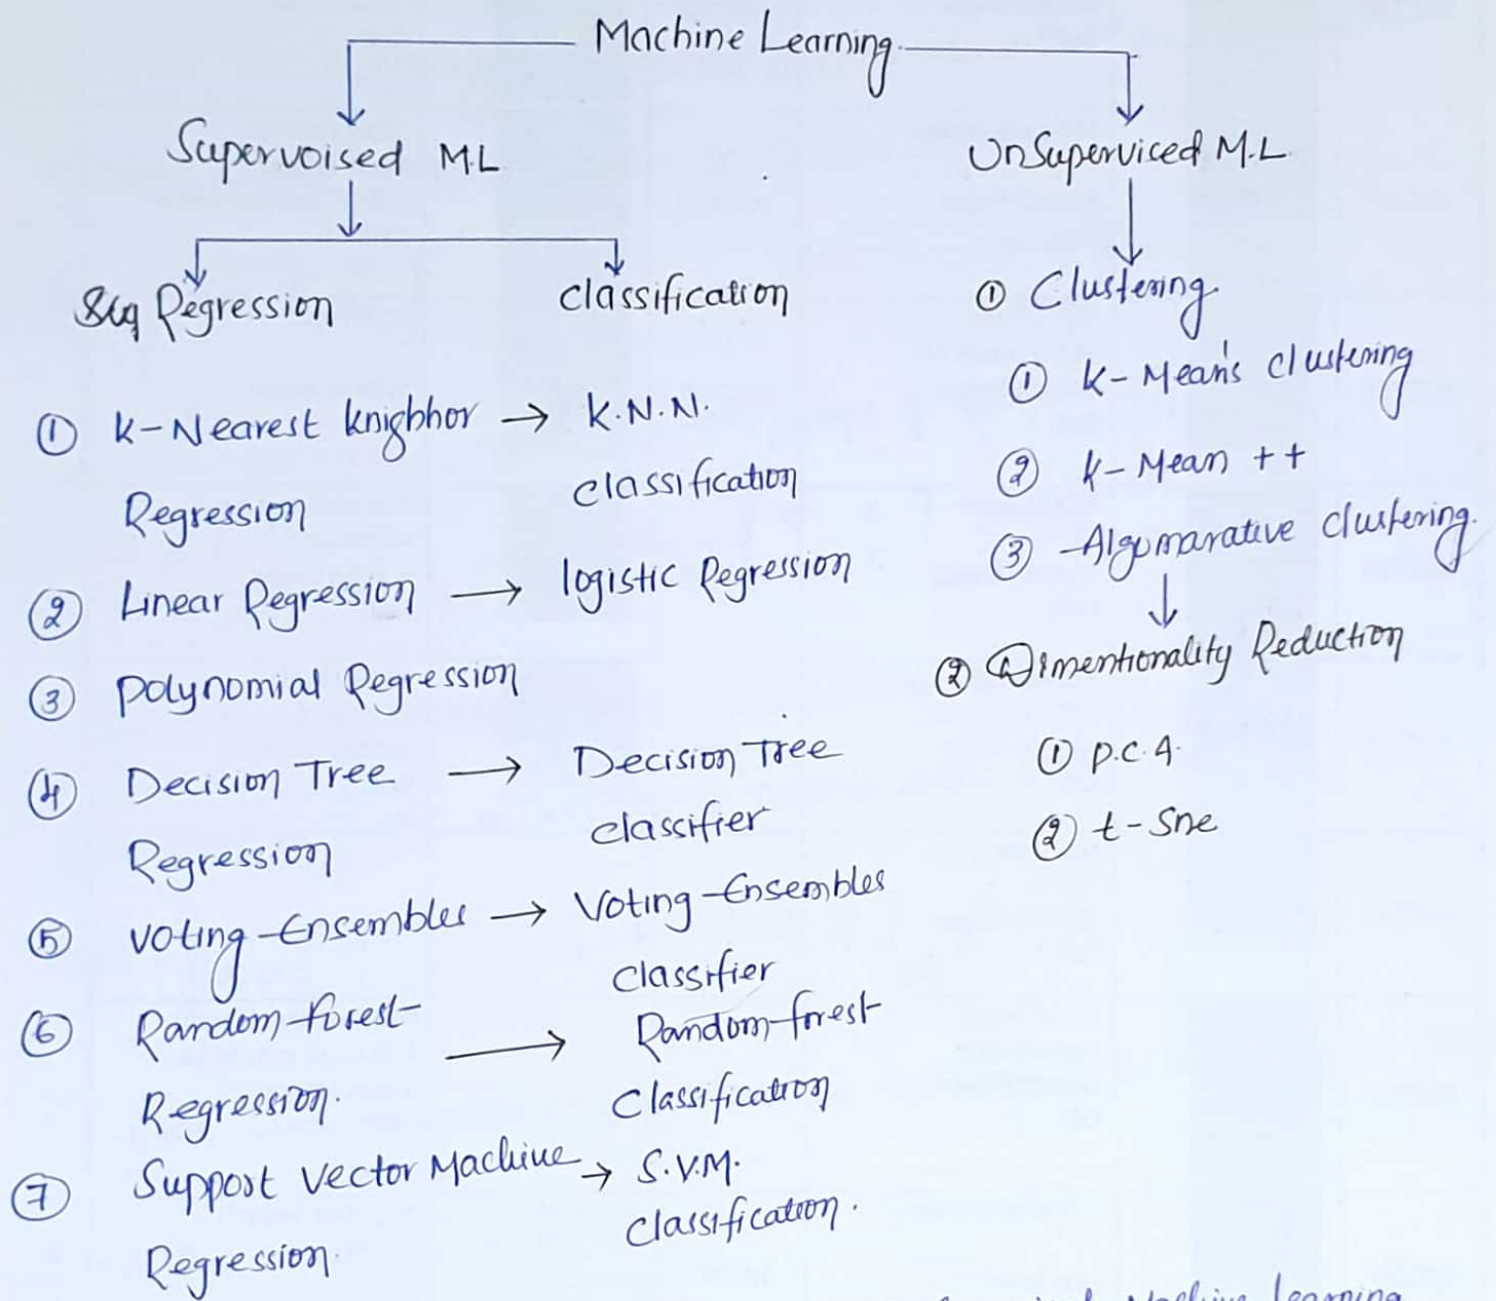 Machine Learning
Supervoised M.L
UnSuperviced M.L
Regression
classification
① k-Nearest knighhor → K.N.N.
Regression
classification
② Linear Regression → logistic Regression
③ polynomial Regression
④ Decision Tree → Decision Tree
Regression
classifier
⑤ voting-Ensembles → Voting-Ensembles
classifier
⑥ Random-forest → Random-forest
Regression.
Classification
⑦ Support Vector Machine → S.V.M.
Regression.
classification.
① Clustering
① K-Mean's clustering
② k-Mean ++
③ Algomarative clustering.
② Dimentionality Reduction
① p.c.A.
② t-Sne
Machine Learning